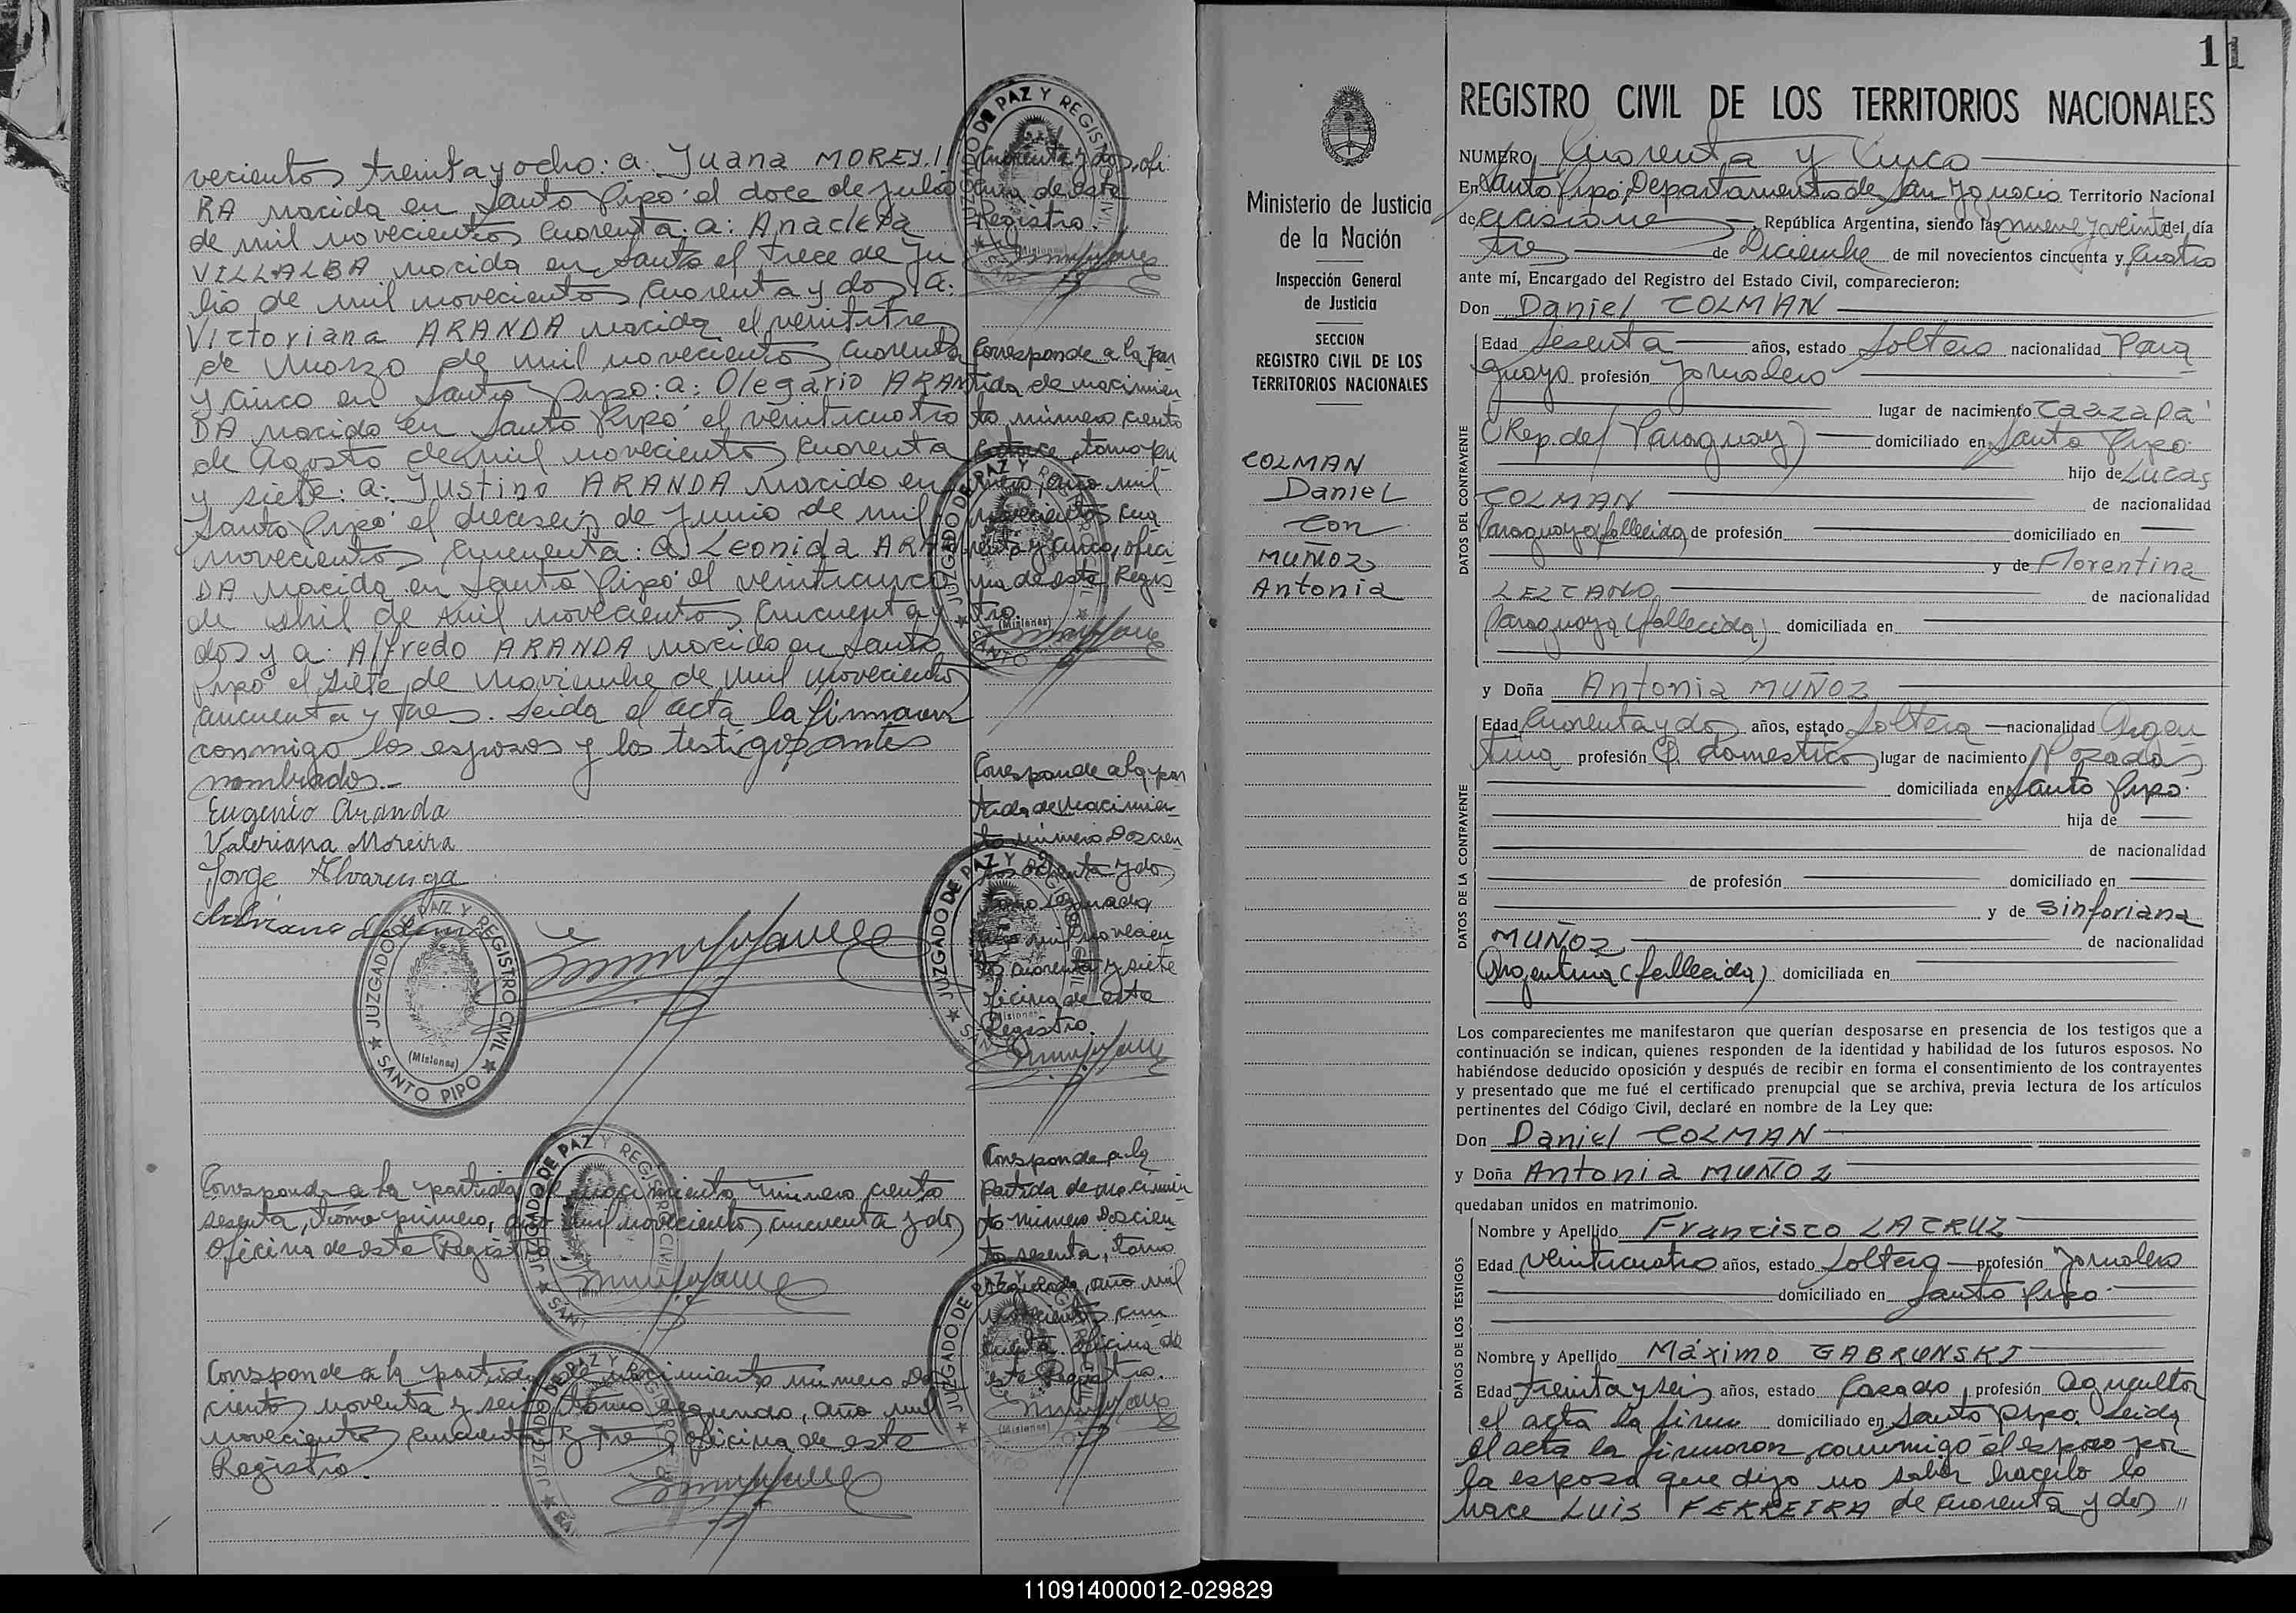 vecientos treinta y ocho: a: Juana MOREYI
RA nacida en Santo Pipó el doce de julio
de mil novecientos cuarenta: a: Anacleta
VILLALBA nacida en Santo el trece de Ju
lio de mil novecientos cuarenta y dos: a:
Victoriana ARANDA nacida el veintitres
de Marzo de mil novecientos cuarenta
y cinco en Santo Pipo: a: Olegario ARAN
DA nacido en Santo Pipó el veinticuatro
de Agosto de mil novecientos cuarenta
y siete: a: Justino ARANDA nacido en
Santo Pipó el dieciseis de Junio de mil
novecientos cincuenta: a Leonida ARAN
DA nacida en Santo Pipó el veinticinco
de abril de mil novecientos cincuenta y
dos y a: Alfredo ARANDA nacido en Santo
Pipó el siete de Noviembre de mil novecientos
cincuenta y tres. Leida el acta la firmaron
conmigo los esposos y los testigos antes
nombrados.-
Eugenio Aranda
Valeriana Moreira
Jorge Alvarenga
JUZGADO DE PAZ Y REGISTRO CIVIL
(Misiones)
SANTO PIPO
Corresponde a la partida de nacimiento número ciento
sesenta, tomo primero, año mil novecientos cincuenta y dos
Oficina de este Registro
Corresponde a la partida de nacimiento número Dos
cientos noventa y seis tomo segundo, año mil
novecientos cincuenta y tres, oficina de este
Registro.
cuarenta y dos, ofi
cina de este
Registro.
Corresponde a la par
tida de nacimien
to número ciento
catorce, tomo pri
mero, año mil
novecientos cua
renta y cinco, ofici
na de este Regis
tro
Corresponde a la par
tida de Nacimien
to número Doscien
tos ochenta y dos
tomo segundo
año mil novecien
tos cuarenta y siete
oficina de este
Registro.
Corresponde a la
partida de nacimien
to número Doscien
tos sesenta, tomo
segundo, año mil
novecientos cin
cuenta oficina de
este Registro.
11
Ministerio de Justicia
de la Nación
Inspección General
de Justicia
SECCION
REGISTRO CIVIL DE LOS
TERRITORIOS NACIONALES
COLMAN
Daniel
Con
MUÑOZ
Antonia
REGISTRO CIVIL DE LOS TERRITORIOS NACIONALES
NUMERO Cuarenta y Cinco
En Santo Pipó, Departamento de San Ignacio Territorio Nacional
de Misiones República Argentina, siendo las nueve y veinte del día
tres de Diciembre de mil novecientos cincuenta y cuatro
ante mí, Encargado del Registro del Estado Civil, comparecieron:
Don Daniel COLMAN
DATOS DEL CONTRAYENTE
Edad sesenta años, estado soltero nacionalidad Para
guaya profesión Jornalero
lugar de nacimiento Caazapá
(Rep. del Paraguay) domiciliado en Santo Pipo
hijo de Lucas
COLMAN de nacionalidad
Paraguaya (fallecido) de profesión domiciliado en
y de Florentina
LEZCANO de nacionalidad
Paraguaya (fallecida) domiciliada en
y Doña Antonia MUÑOZ
DATOS DE LA CONTRAYENTE
Edad cuarenta y dos años, estado soltera nacionalidad Argen
tina profesión Q. domesticos lugar de nacimiento Posadas
domiciliada en Santo Pipo.
hija de
de nacionalidad
de profesión domiciliado en
y de Sinforiana
MUÑOZ de nacionalidad
Argentina (fallecida) domiciliada en
Los comparecientes me manifestaron que querían desposarse en presencia de los testigos que a
continuación se indican, quienes responden de la identidad y habilidad de los futuros esposos. No
habiéndose deducido oposición y después de recibir en forma el consentimiento de los contrayentes
y presentado que me fué el certificado prenupcial que se archiva, previa lectura de los artículos
pertinentes del Código Civil, declaré en nombre de la Ley que:
Don Daniel COLMAN
y Doña Antonia MUÑOZ
quedaban unidos en matrimonio.
DATOS DE LOS TESTIGOS
Nombre y Apellido Francisco LACRUZ
Edad veinticuatro años, estado soltero profesión Jornalero
domiciliado en Santo Pipo
Nombre y Apellido Máximo GABRUNSKI
Edad treinta y seis años, estado Casado profesión agricultor
el acta la firm domiciliado en Santo Pipo. Leida
el acta la firmaron conmigo el esposo por
la esposa que dijo no saber hacerlo lo
hace LUIS FERREIRA de cuarenta y dos //
110914000012-029829